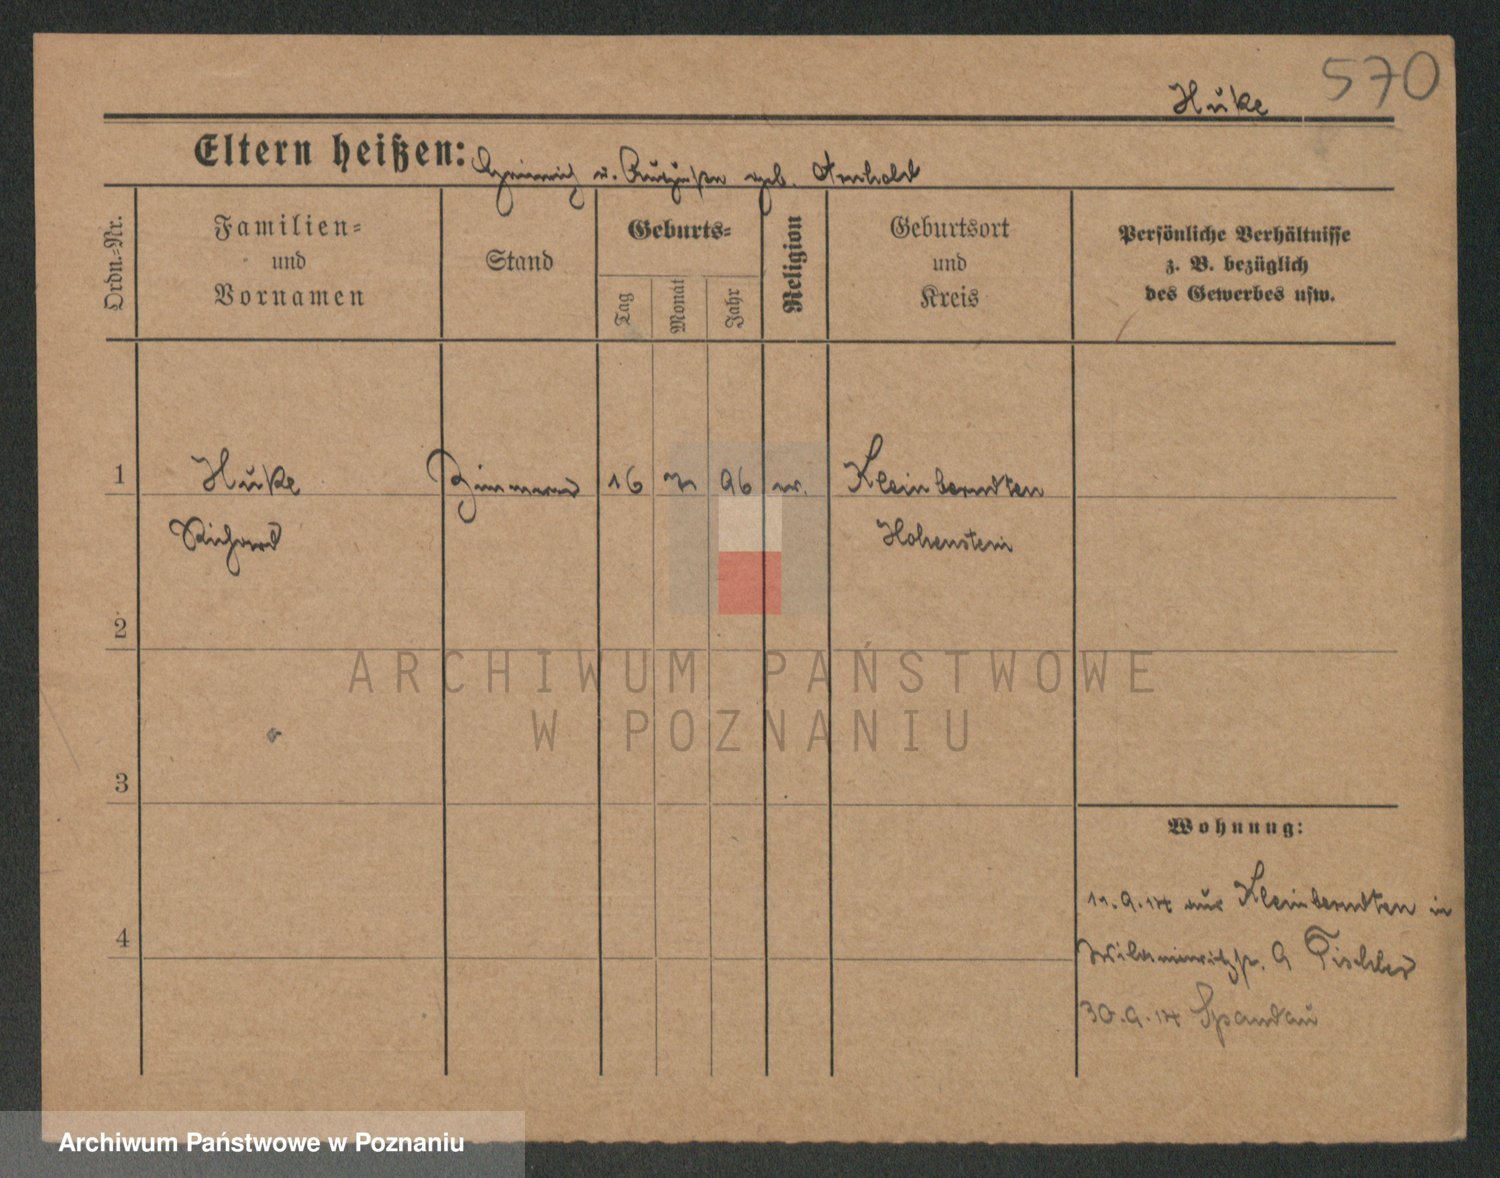 570
Huke
Eltern heißen: Heinrich u. geb. Arnhold
Ordn.-Nr.
Familien-
und
Vornamen
Stand
Geburts-
Tag
Monat
Jahr
Religion
Geburtsort
und
Kreis
Persönliche Verhältnisse
z. B. bezüglich
des Gewerbes usw.
1 Huke Zimmerer 16 7 96 ev. Kleinberndten
Richard Hohenstein
2
3
4
Wohnung:
11.9.14 aus Kleinberndten in
9 Tischler
30.9.14 Spandau
ARCHIWUM PAŃSTWOWE
W POZNANIU
Archiwum Państwowe w Poznaniu